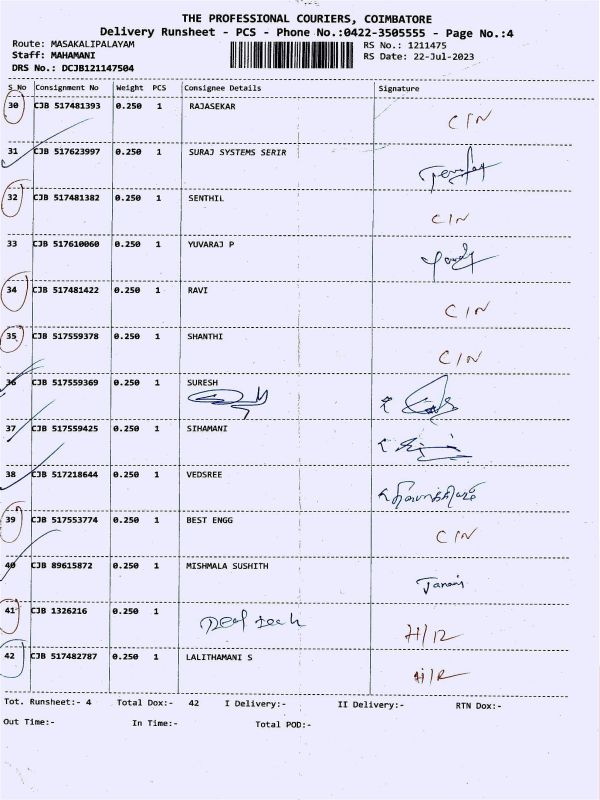 THE PROFESSIONAL COURIERS, COIMBATORE
Delivery Runsheet - PCS - Phone No.:0422-3505555 - Page No.:4
Route: MASAKALIPALAYAM RS No.: 1211475
Staff: MAHAMANI RS Date: 22-Jul-2023
DRS No.: DCJB121147504
S No Consignment No Weight PCS Consignee Details Signature
30 CJB 517481393 0.250 1 RAJASEKAR C/N
31 CJB 517623997 0.250 1 SURAJ SYSTEMS SERIR
32 CJB 517481382 0.250 1 SENTHIL C/N
33 CJB 517610060 0.250 1 YUVARAJ P
34 CJB 517481422 0.250 1 RAVI C/N
35 CJB 517559378 0.250 1 SHANTHI C/N
36 CJB 517559369 0.250 1 SURESH
37 CJB 517559425 0.250 1 SIHAMANI
38 CJB 517218644 0.250 1 VEDSREE
39 CJB 517553774 0.250 1 BEST ENGG C/N
40 CJB 89615872 0.250 1 MISHMALA SUSHITH
41 CJB 1326216 0.250 1 H/R
42 CJB 517482787 0.250 1 LALITHAMANI S H/R
Tot. Runsheet:- 4 Total Dox:- 42 I Delivery:- II Delivery:- RTN Dox:-
Out Time:- In Time:- Total POD:-